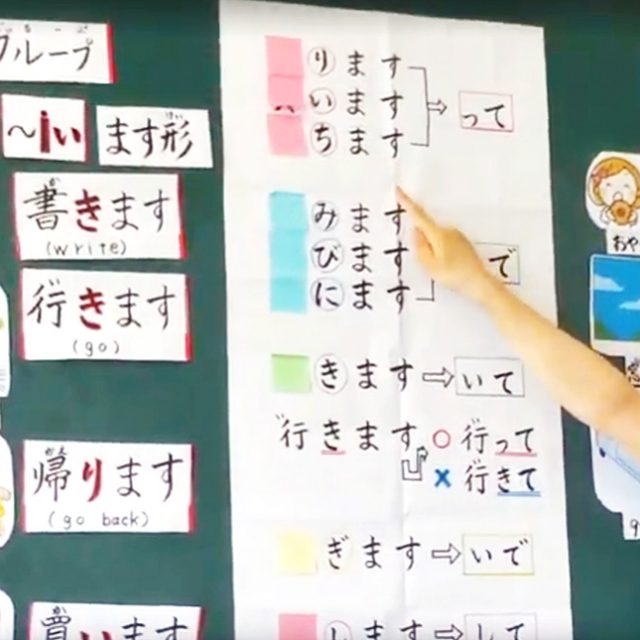 グループ
～iい
ます形
書きます
(write)
行きます
(go)
帰ります
(go back)
買います
ります
います
ちます
って
みます
びます
にます
で
きます⇨いて
行きます
○ 行って
× 行きて
ぎます⇨いで
します⇨して
おや